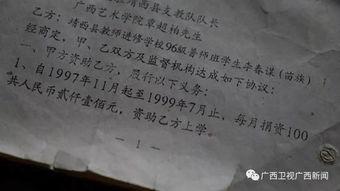 靖西县支教队队长
广西艺术学院章超柏先生
乙方：靖西县教师进修学校96级普师班学生李春谋（苗族）
经商定，甲、乙双方及监督机构达成如下协议：
一、甲方资助乙方，履行以下义务：
1、自1997年11月起至1999年7月止，每月捐资100
共人民币贰仟壹佰元，资助乙方上学。
- 1 -
广西卫视广西新闻